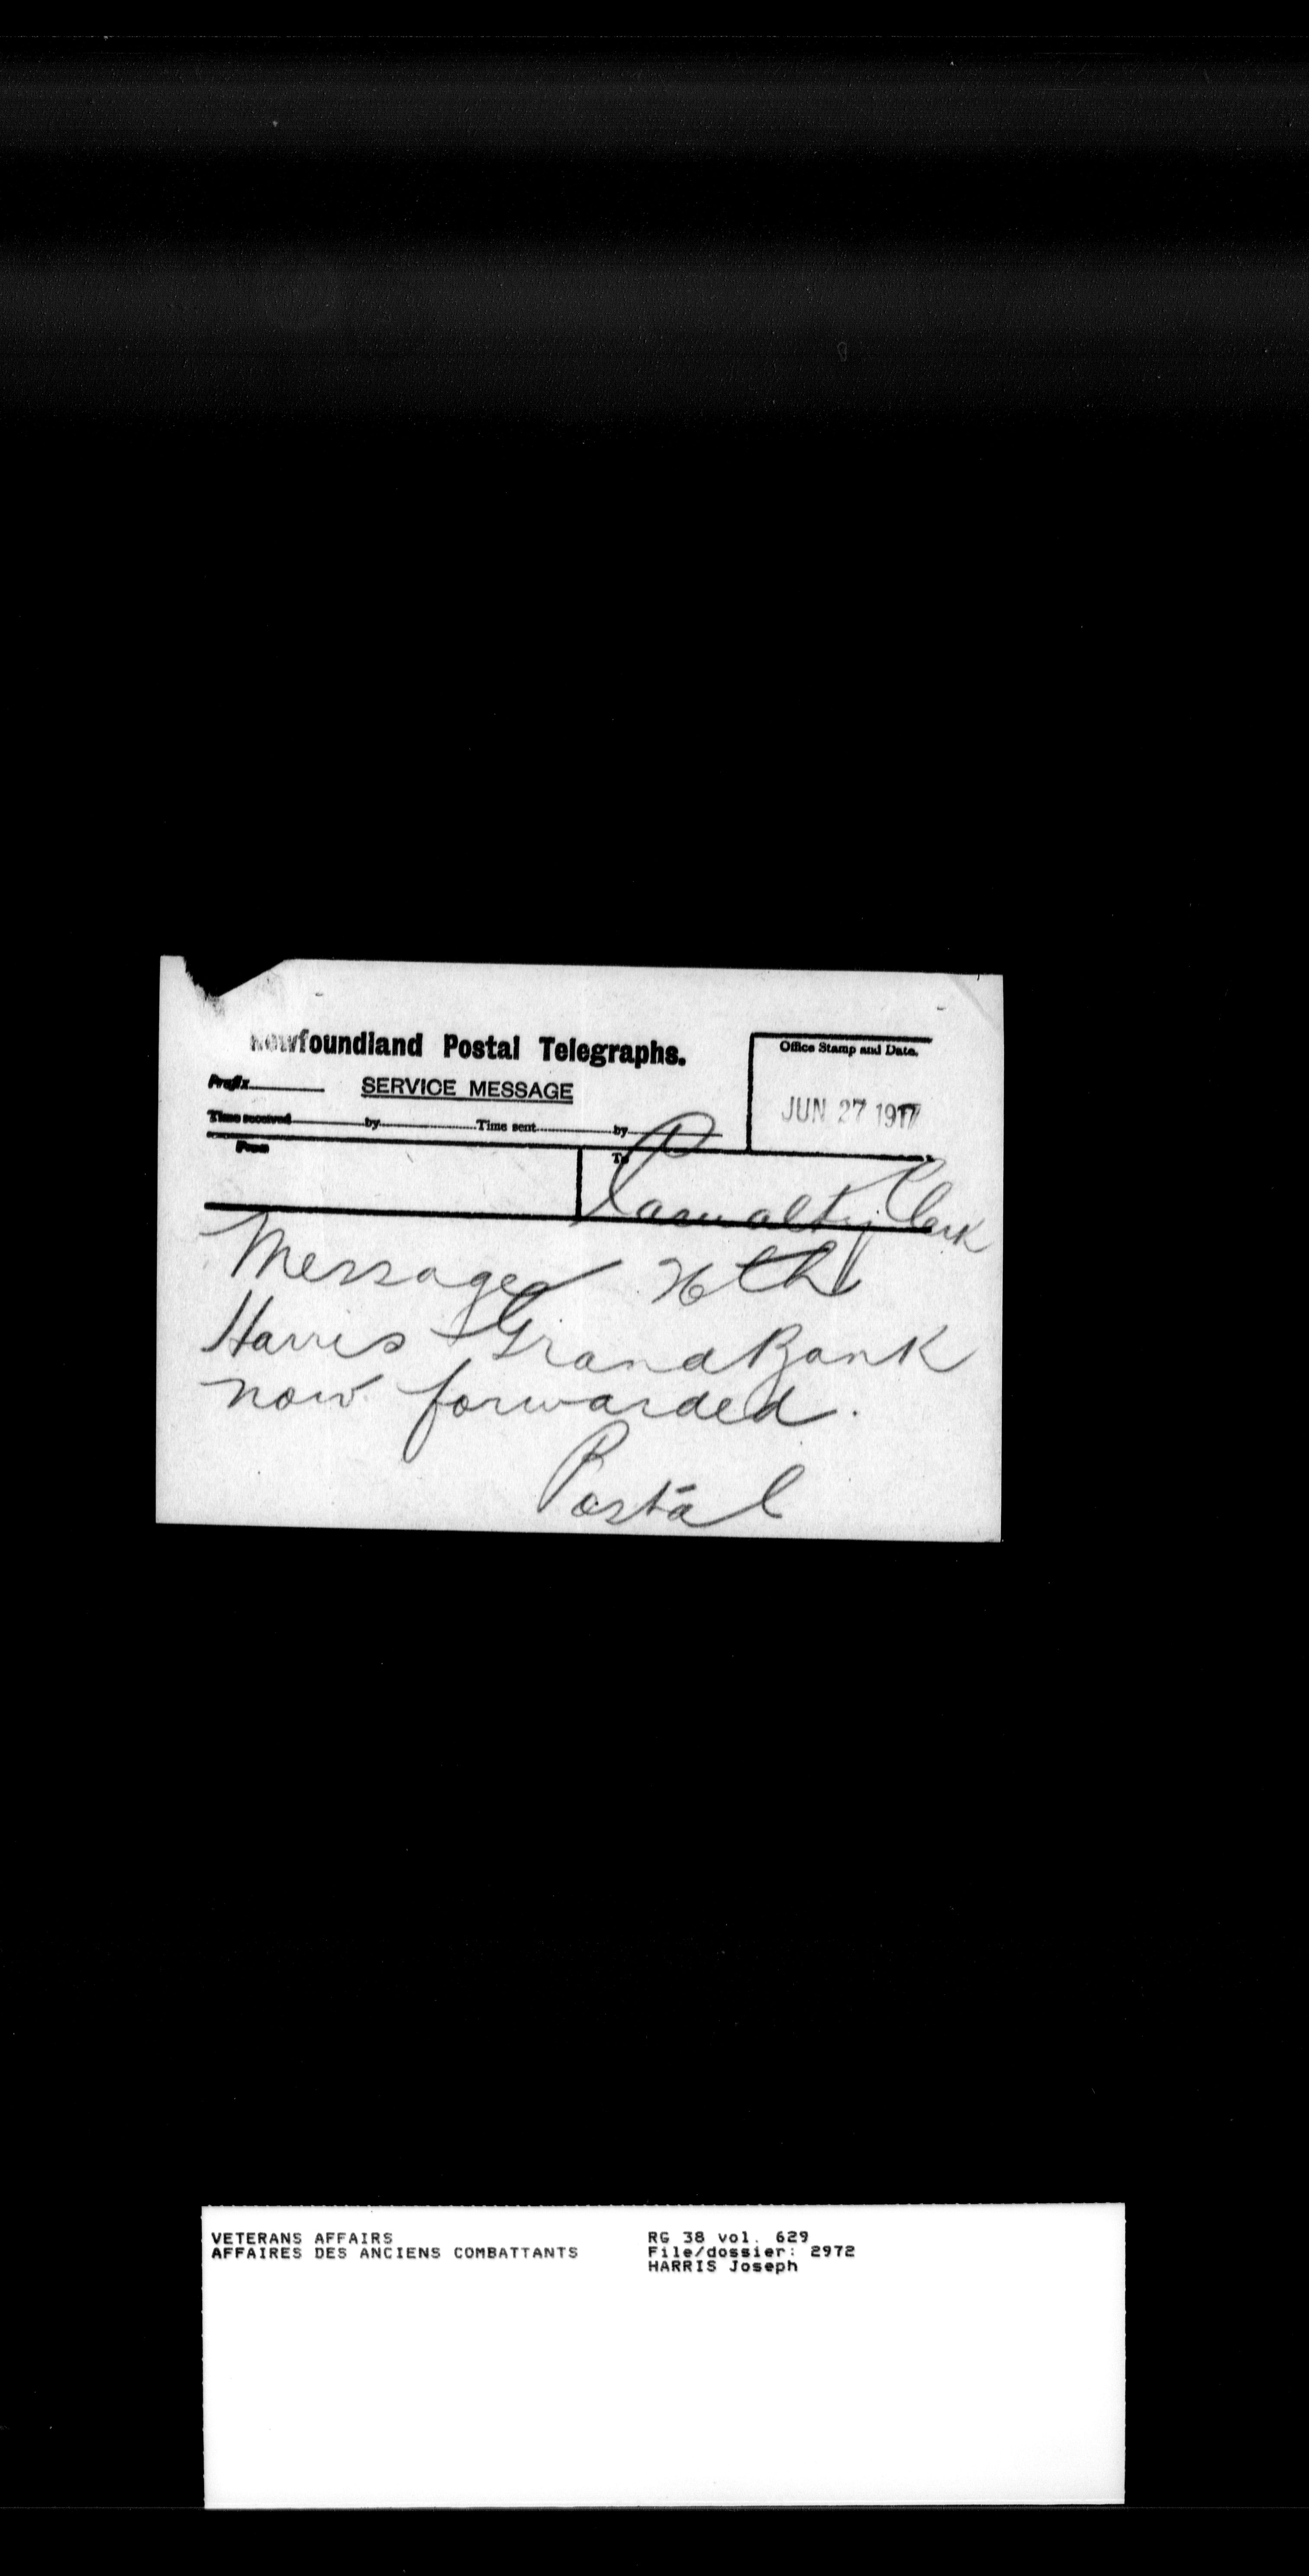 Newfoundland Postal Telegraphs.
Office Stamp and Date.
Prefix
SERVICE MESSAGE
JUN 27 1917
Time received by Time sent by
From
To
Casualty Clerk
Message 26th
Harris Grand Bank
now forwarded.
Postal
VETERANS AFFAIRS
AFFAIRES DES ANCIENS COMBATTANTS
RG 38 vol. 629
File/dossier: 2972
HARRIS Joseph